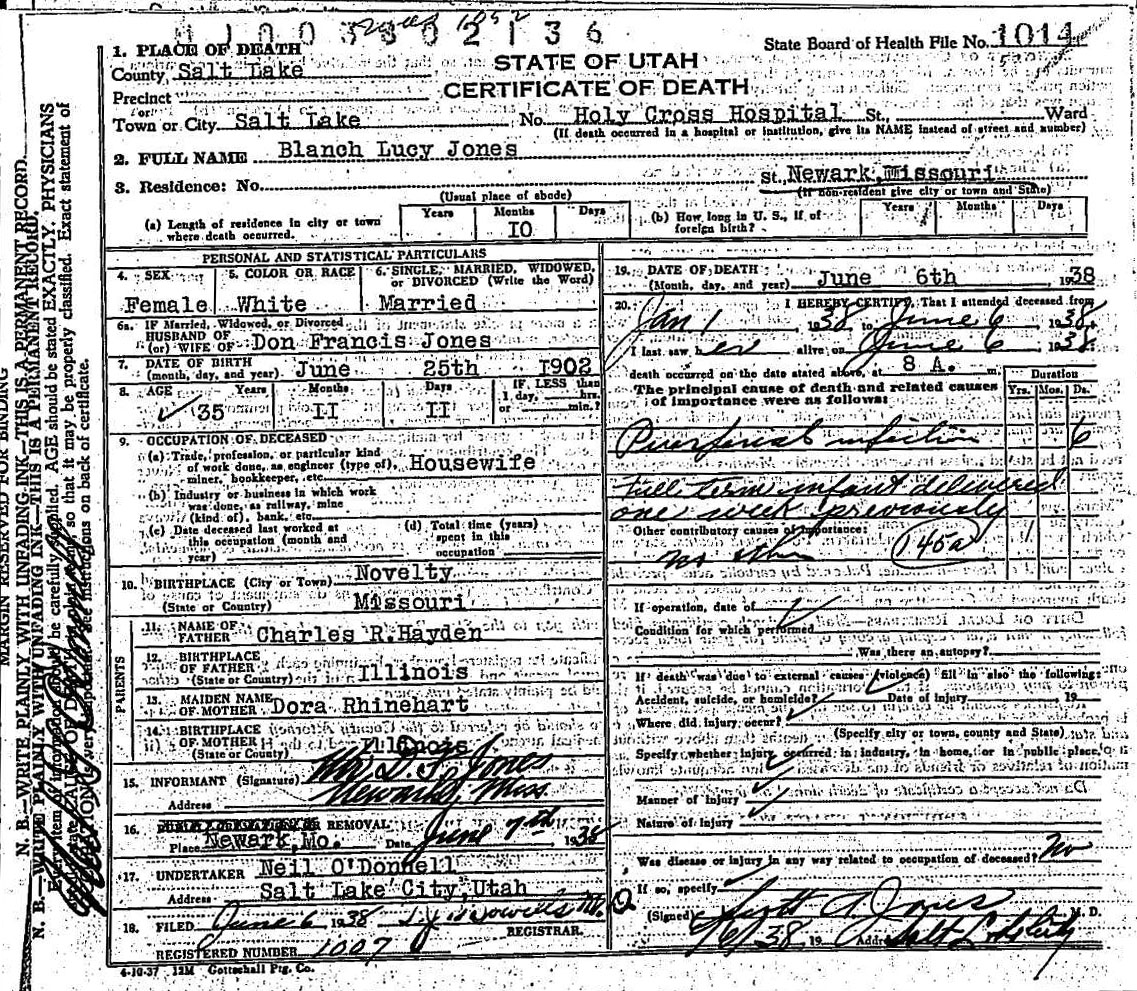 1. PLACE OF DEATH
State Board of Health File No. 1014
County, Salt Lake
STATE OF UTAH
Precinct
CERTIFICATE OF DEATH
or
Town or City Salt Lake No. Holy Cross Hospital St., Ward
(If death occurred in a hospital or institution, give its NAME instead of street and number)
2. FULL NAME Blanch Lucy Jones
3. Residence: No. St., Newark, Missouri
(Usual place of abode) (If non-resident give city or town and State)
(a) Length of residence in city or town where death occurred. Years Months 10 Days
(b) How long in U. S., if of foreign birth? Years Months Days
PERSONAL AND STATISTICAL PARTICULARS
4. SEX 5. COLOR OR RACE 6. SINGLE, MARRIED, WIDOWED, or DIVORCED (Write the Word)
Female White Married
6a. IF Married, Widowed, or Divorced
HUSBAND OF
(or) WIFE OF Don Francis Jones
7. DATE OF BIRTH
(month, day, and year) June 25th 1902
8. AGE Years Months Days IF LESS than 1 day, hrs. or min.?
35 II II
9. OCCUPATION OF DECEASED
(a) Trade, profession, or particular kind
of work done, as engineer (type of), Housewife
miner, bookkeeper, etc.
(b) Industry or business in which work
was done, as railway, mine
(kind of), bank, etc.
(c) Date deceased last worked at this occupation (month and year)
(d) Total time (years) spent in this occupation
10. BIRTHPLACE (City or Town) Novelty
(State or Country) Missouri
PARENTS
11. NAME OF FATHER Charles R. Hayden
12. BIRTHPLACE OF FATHER
(State or Country) Illinois
13. MAIDEN NAME OF MOTHER Dora Rhinehart
14. BIRTHPLACE OF MOTHER
(State or County) Illinois
15. INFORMANT (Signature) Mr D. F. Jones
Address Newark, Miss.
16. REMOVAL
Place Newark, Mo. Date June 7th 1938
17. UNDERTAKER Neil O'Donnell
Address Salt Lake City, Utah
18. FILED June 6 1938
REGISTRAR.
REGISTERED NUMBER 1007
4-10-37 12M Gottschall Ptg. Co.
19. DATE OF DEATH
(Month, day, and year) June 6th 1938
20. I HEREBY CERTIFY, That I attended deceased from
Jan 1, 1938 to June 6 1938.
I last saw her alive on June 6 1938.
death occurred on the date stated above, at 8 A. m.
The principal cause of death and related causes of importance were as follows:
Duration
Yrs. Mos. Ds.
Puerperial infection 6
Full term infant delivered
one week previously
Other contributory causes of importance:
no other 145a
If operation, date of
Condition for which performed
Was there an autopsy?
If death was due to external causes (violence) fill in also the following:
Accident, suicide, or homicide? Date of injury 19
Where did injury occur?
(Specify city or town, county and State)
Specify whether injury occurred in industry, in home, or in public place,
Manner of Injury
Nature of Injury
Was disease or injury in any way related to occupation of deceased? No
If so, specify
(Signed) Scott A Jones M. D.
6/6/38 19 Address Salt L. City
MARGIN RESERVED FOR BINDING
N. B.—WRITE PLAINLY WITH UNFADING INK—THIS IS A PERMANENT RECORD.
N. B.—WRITE PLAINLY WITH UNFADING INK—THIS IS A PERMANENT RECORD.